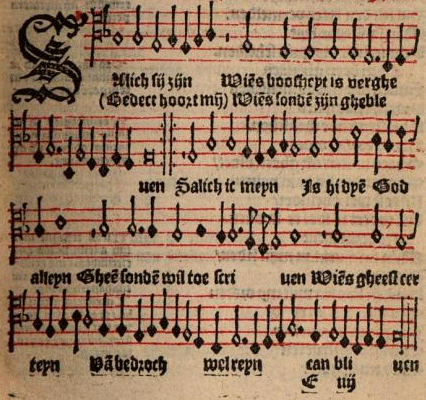 SAlich sij zijn Wiēs boosheyt is verghe
(Bedect hoort mij) Wiēs sondē zijn gheble
uen Salich ic meyn Is hi dyē God
alleyn Gheē sondē wil toe scri uen Wiēs gheest cer
teyn Vā bedroch wel reyn can bli uen
E iiij